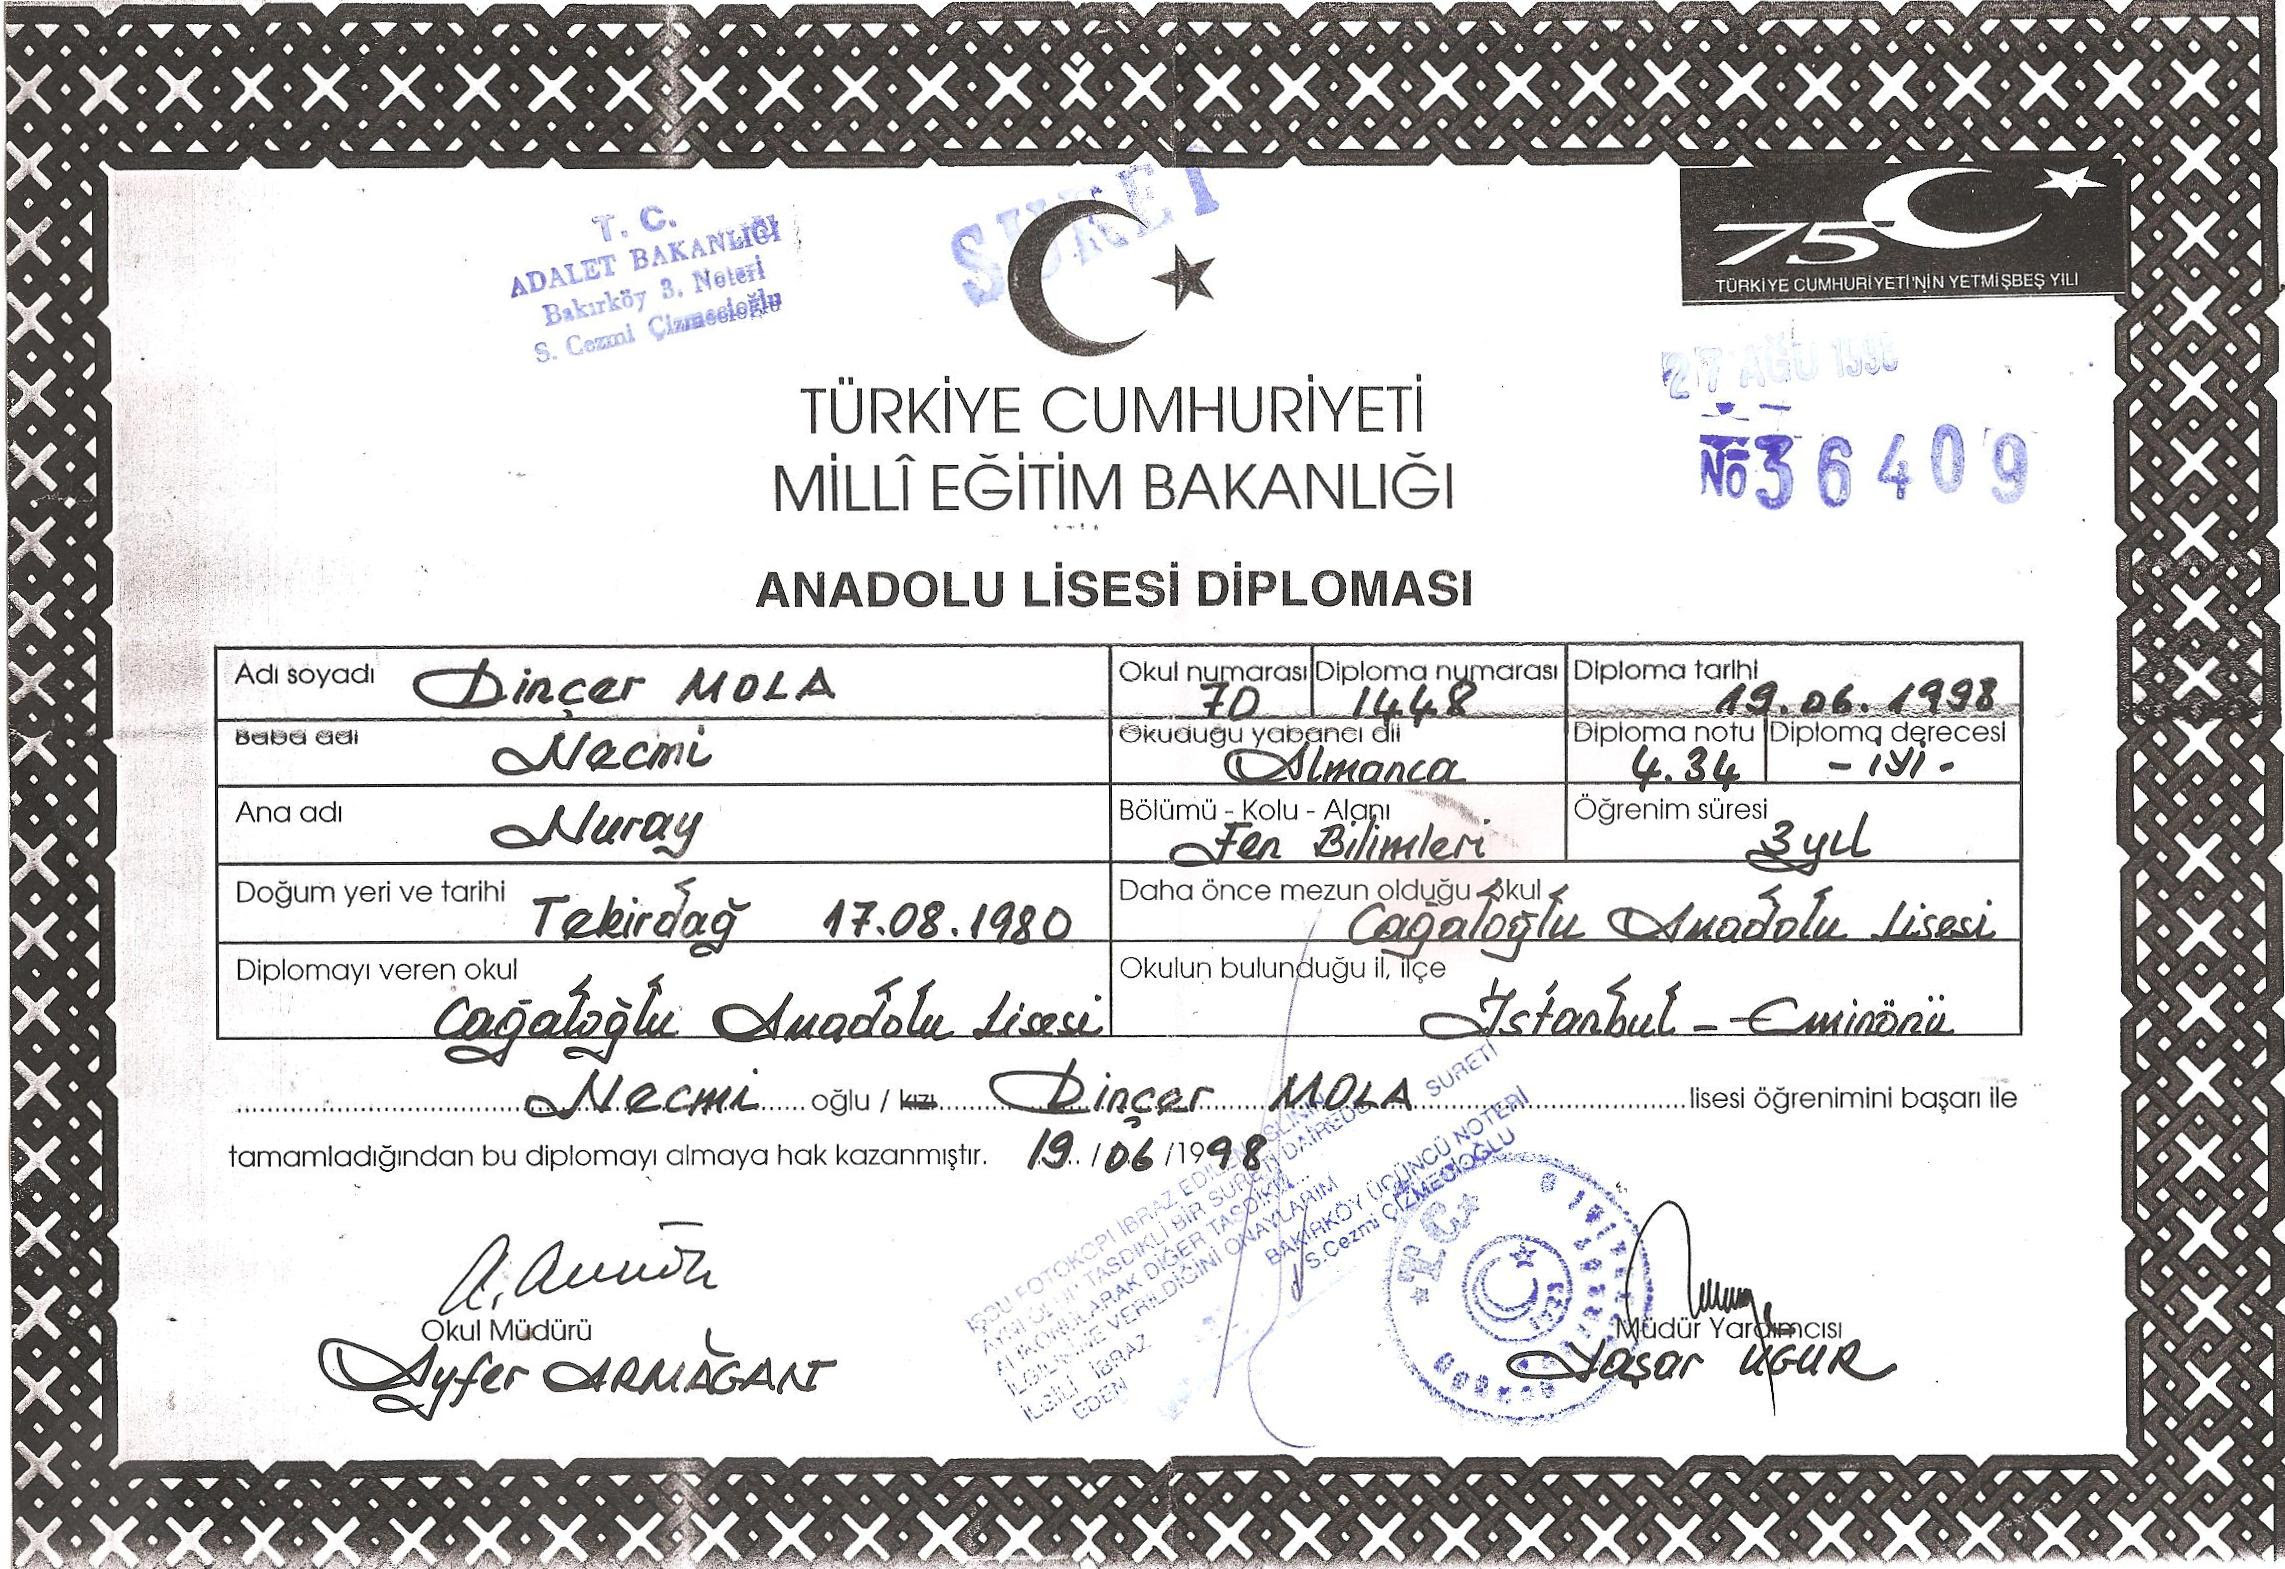 T. C.
ADALET BAKANLIĞI
Bakırköy 3. Noteri
S. Cezmi Çizmecioğlu
SURET
75
TÜRKİYE CUMHURİYETİ'NİN YETMİŞBEŞ YILI
27 AĞU 1998
No 36409
TÜRKİYE CUMHURİYETİ
MİLLÎ EĞİTİM BAKANLIĞI
ANADOLU LİSESİ DİPLOMASI
Adı soyadı Dinçer MOLA Okul numarası 70 Diploma numarası 1448 Diploma tarihi 19.06.1998
Baba adı Necmi Okuduğu yabancı dil Almanca Diploma notu 4.34 Diploma derecesi -iyi-
Ana adı Nuray Bölümü - Kolu - Alanı Fen Bilimleri Öğrenim süresi 3 yıl
Doğum yeri ve tarihi Tekirdağ 17.08.1980 Daha önce mezun olduğu okul Cağaloğlu Anadolu Lisesi
Diplomayı veren okul Cağaloğlu Anadolu Lisesi Okulun bulunduğu il, ilçe İstanbul - Eminönü
Necmi oğlu / kızı Dinçer MOLA lisesi öğrenimini başarı ile
tamamladığından bu diplomayı almaya hak kazanmıştır. 19 / 06 / 1998
İŞBU FOTOKOPİ İBRAZ EDİLEN ASLININ
AYNI OLUP TASDİKLİ BİR SURETİ DAİREDE SURETİ
ALIKONULARAK DİĞER TASDİKLİ
İLGİLİSİNE VERİLDİĞİNİ ONAYLARIM
İLGİLİ İBRAZ
EDEN
BAKIRKÖY ÜÇÜNCÜ NOTERİ
S.Cezmi ÇİZMECİOĞLU
T.C.
Okul Müdürü
Ayfer ARMAĞAN
Müdür Yardımcısı
Yaşar UĞUR